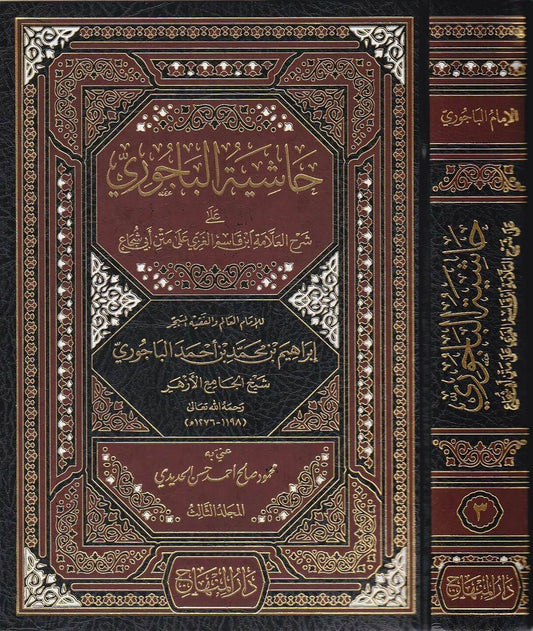 حَاشِيَةُ البَاجُورِيّ
عَلَى
شَرْحِ العَلَّامَةِ ابْنِ قَاسِمٍ الغَزِّيِّ عَلَى مَتْنِ أَبِي شُجَاعٍ
للإمام العالم والفقيه المتبحر
إبراهيم بن محمد بن أحمد الباجوري
شيخ الجامع الأزهر
رحمه الله تعالى
(١١٩٨-١٢٧٦ه)
عني به
محمود صالح أحمد حسن الحديدي
المجلد الثالث
دار المنهاج
الإمام الباجوري
حاشية الباجوري
على شرح العلامة ابن قاسم الغزي على متن أبي شجاع
٣
دار المنهاج